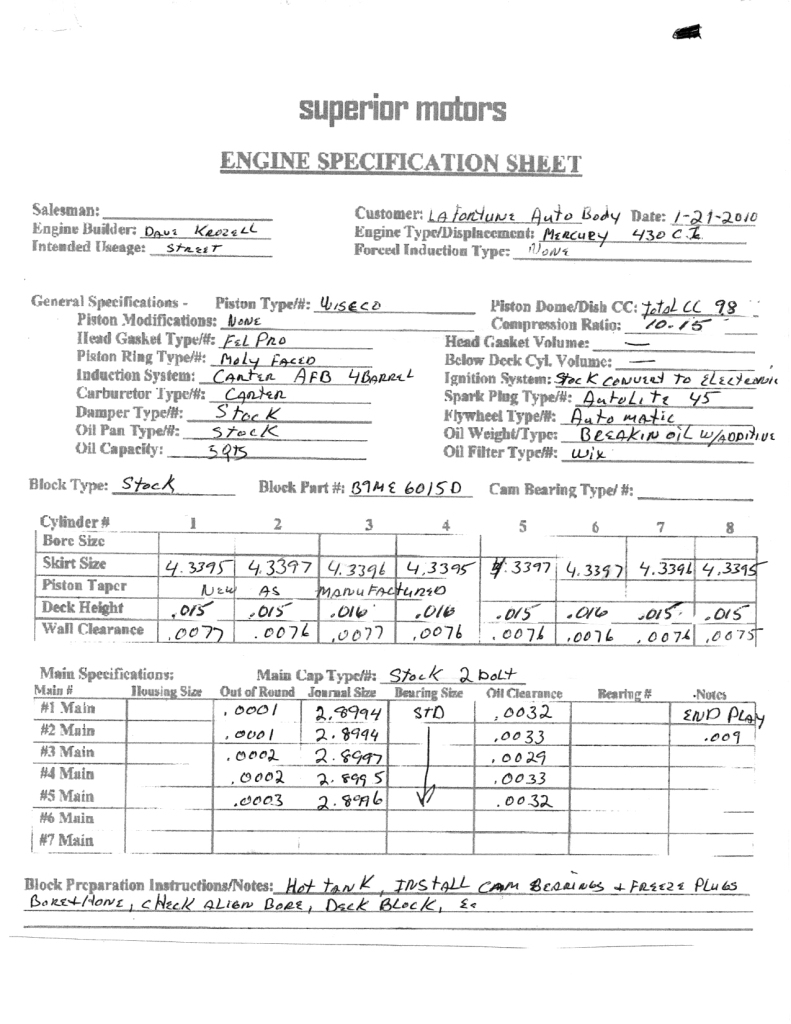 superior motors
ENGINE SPECIFICATION SHEET
Salesman:
Customer: LAFORTUNE AUTO BODY Date: 1-21-2010
Engine Builder: DAVE KROZELL
Engine Type/Displacement: MERCURY 430 C.I.
Intended Useage: STREET
Forced Induction Type: NONE
General Specifications - Piston Type/#: WISECO
Piston Dome/Dish CC: total CC 98
Piston Modifications: NONE
Compression Ratio: 10-15
Head Gasket Type/#: FEL PRO
Head Gasket Volume: —
Piston Ring Type/#: MOLY FACED
Below Deck Cyl. Volume: —
Induction System: CARTER AFB 4BARREL
Ignition System: StocK CONVERT TO ELECTRONIC
Carburetor Type/#: CARTER
Spark Plug Type/#: AUTOLITE 45
Damper Type/#: StocK
Flywheel Type/#: AUTOMATIC
Oil Pan Type/#: STOCK
Oil Weight/Type: BREAKIN OIL W/ADDITIVE
Oil Capacity: 5 QTS
Oil Filter Type/#: WIX
Block Type: StocK Block Part #: B9ME 6015 D Cam Bearing Type/ #:
Cylinder # 1 2 3 4 5 6 7 8
Bore Size
Skirt Size 4.3395 4.3397 4.3396 4.3395 4.3397 4.3397 4.3396 4.3395
Piston Taper NEW AS MANUFACTURED
Deck Height .015 .015 .016 .016 .015 .016 .015 .015
Wall Clearance .0077 .0076 .0077 .0076 .0076 .0076 .0076 .0075
Main Specifications: Main Cap Type/#: StocK 2 bolt
Main # Housing Size Out of Round Journal Size Bearing Size Oil Clearance Bearing # Notes
#1 Main .0001 2.8994 STD .0032 END PLAY
#2 Main .0001 2.8994 .0033 .009
#3 Main .0002 2.8997 .0029
#4 Main .0002 2.8995 .0033
#5 Main .0003 2.8996 .0032
#6 Main
#7 Main
Block Preparation Instructions/Notes: HOT TANK, INSTALL CAM BEARINGS + FREEZE PLUGS
BORE+HONE, CHECK ALIGN BORE, DECK BLOCK,